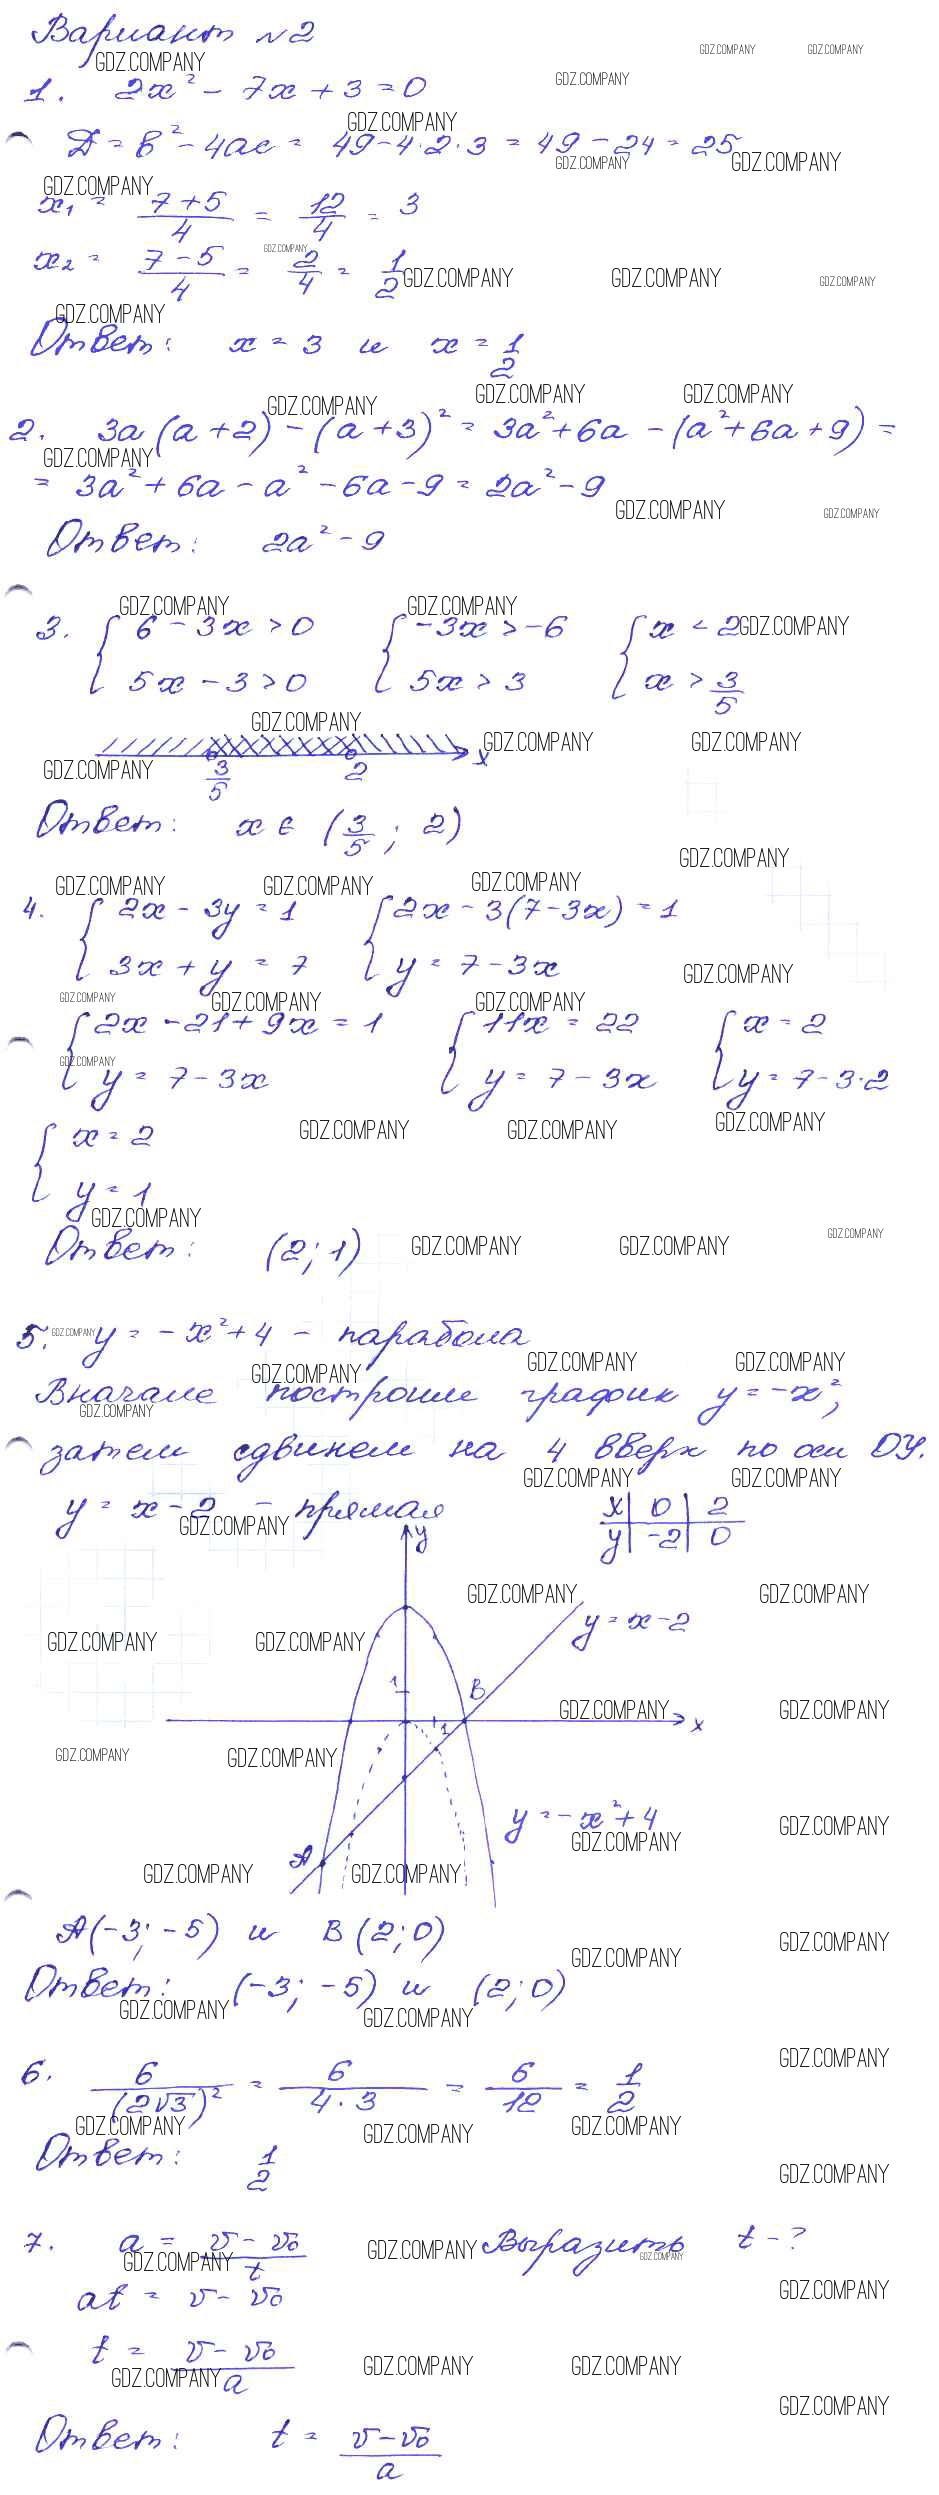 Вариант №2
1. 2x² - 7x + 3 = 0
Д = в² - 4ас = 49 - 4·2·3 = 49 - 24 = 25
x₁ = (7+5)/4 = 12/4 = 3
x₂ = (7-5)/4 = 2/4 = 1/2
Ответ: x = 3 и x = 1/2
2. 3a(a+2) - (a+3)² = 3a² + 6a - (a² + 6a + 9) =
= 3a² + 6a - a² - 6a - 9 = 2a² - 9
Ответ: 2a² - 9
3. { 6 - 3x > 0 { -3x > -6 { x < 2
5x - 3 > 0 5x > 3 x > 3/5
3/5 2 x
Ответ: x ∈ (3/5; 2)
4. { 2x - 3y = 1 { 2x - 3(7-3x) = 1
3x + y = 7 y = 7 - 3x
{ 2x - 21 + 9x = 1 { 11x = 22 { x = 2
y = 7 - 3x y = 7 - 3x y = 7 - 3·2
{ x = 2
y = 1
Ответ: (2; 1)
5. y = -x² + 4 - парабола
Вначале построим график y = -x²,
затем сдвинем на 4 вверх по оси ОУ.
y = x - 2 - прямая
x | 0 | 2
y | -2 | 0
y
y = x - 2
1
B
1
x
y = -x² + 4
A
A(-3; -5) и B(2; 0)
Ответ: (-3; -5) и (2; 0)
6. 6/(2√3)² = 6/(4·3) = 6/12 = 1/2
Ответ: 1/2
7. a = (v - v₀)/t Выразить t - ?
at = v - v₀
t = (v - v₀)/a
Ответ: t = (v - v₀)/a
GDZ.COMPANY